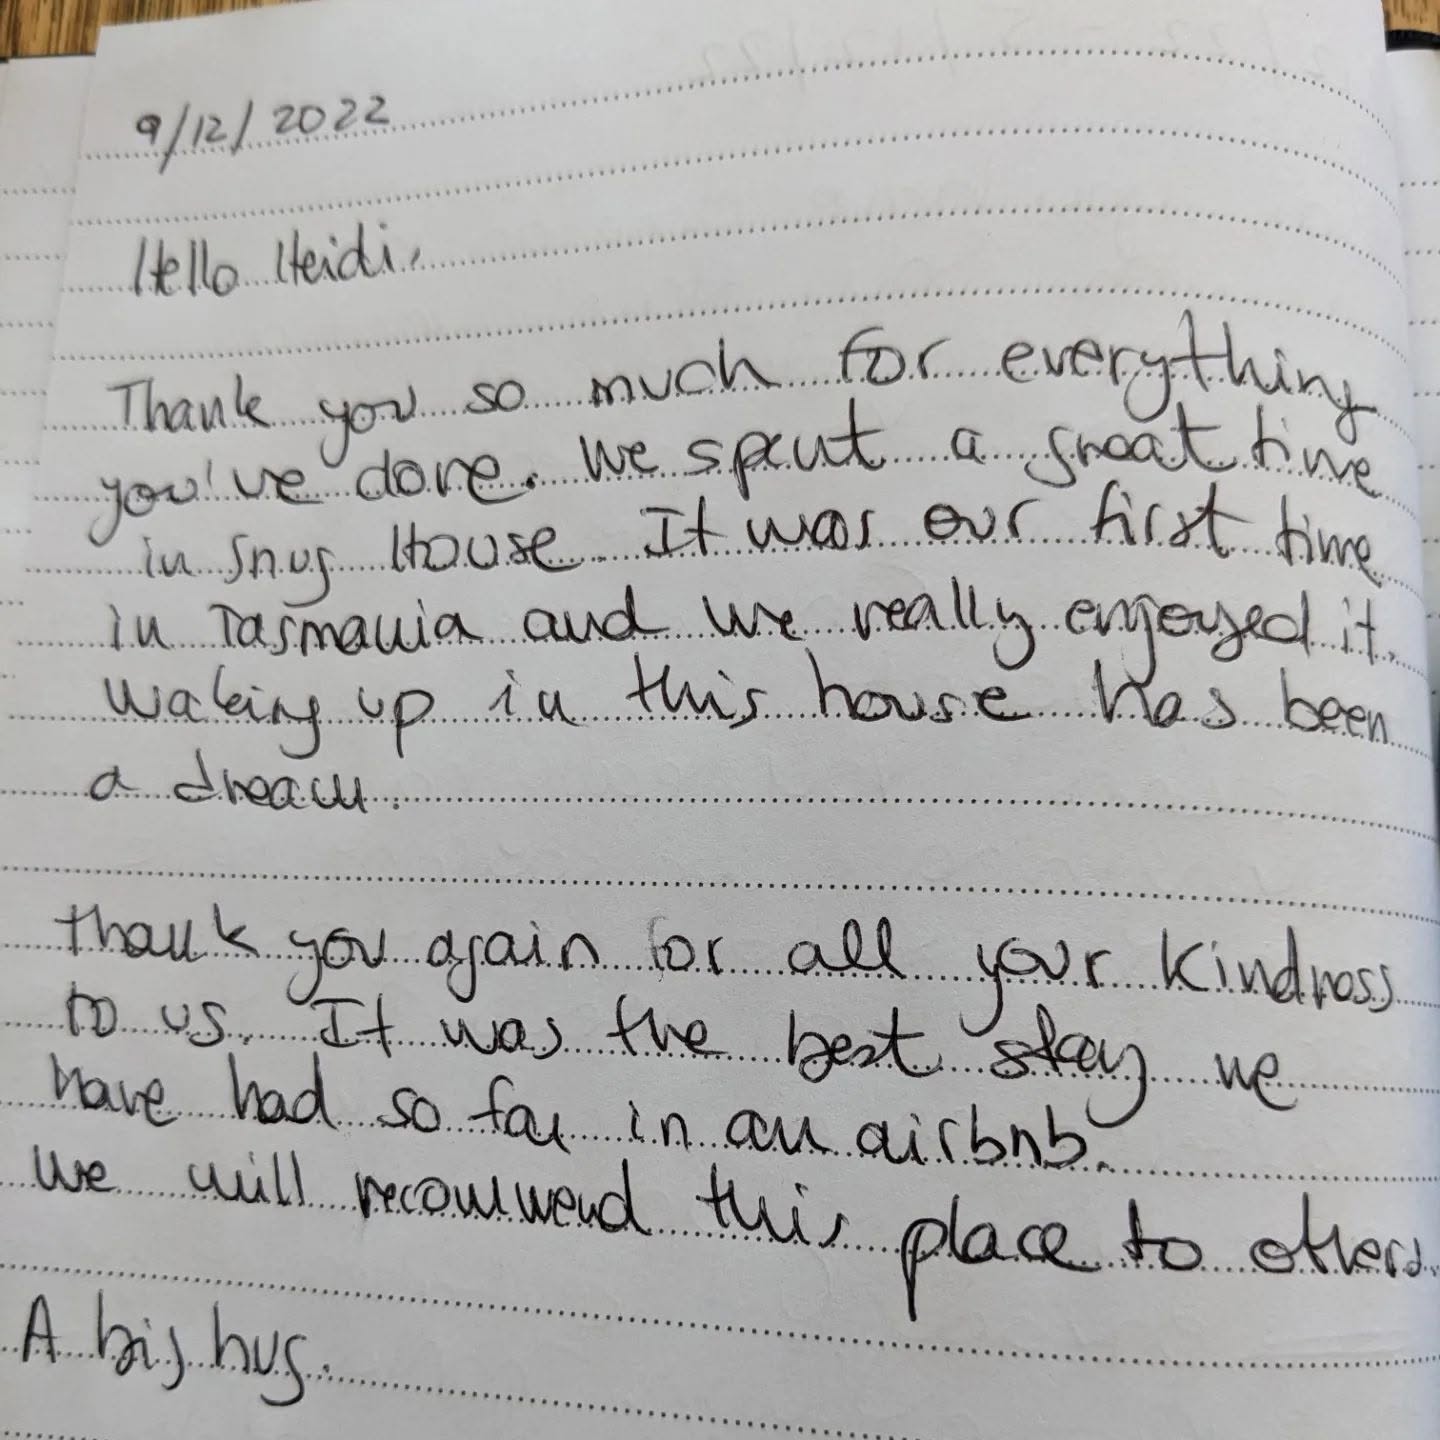 9/12/2022
Hello Heidi,
Thank you so much for everything
you've done. We spent a great time
in Snug House. It was our first time
in Tasmania and we really enjoyed it.
Waking up in this house has been
a dream.
Thank you again for all your kindness
to us. It was the best stay we
have had so far in an airbnb.
We will recommend this place to others.
A big hug.